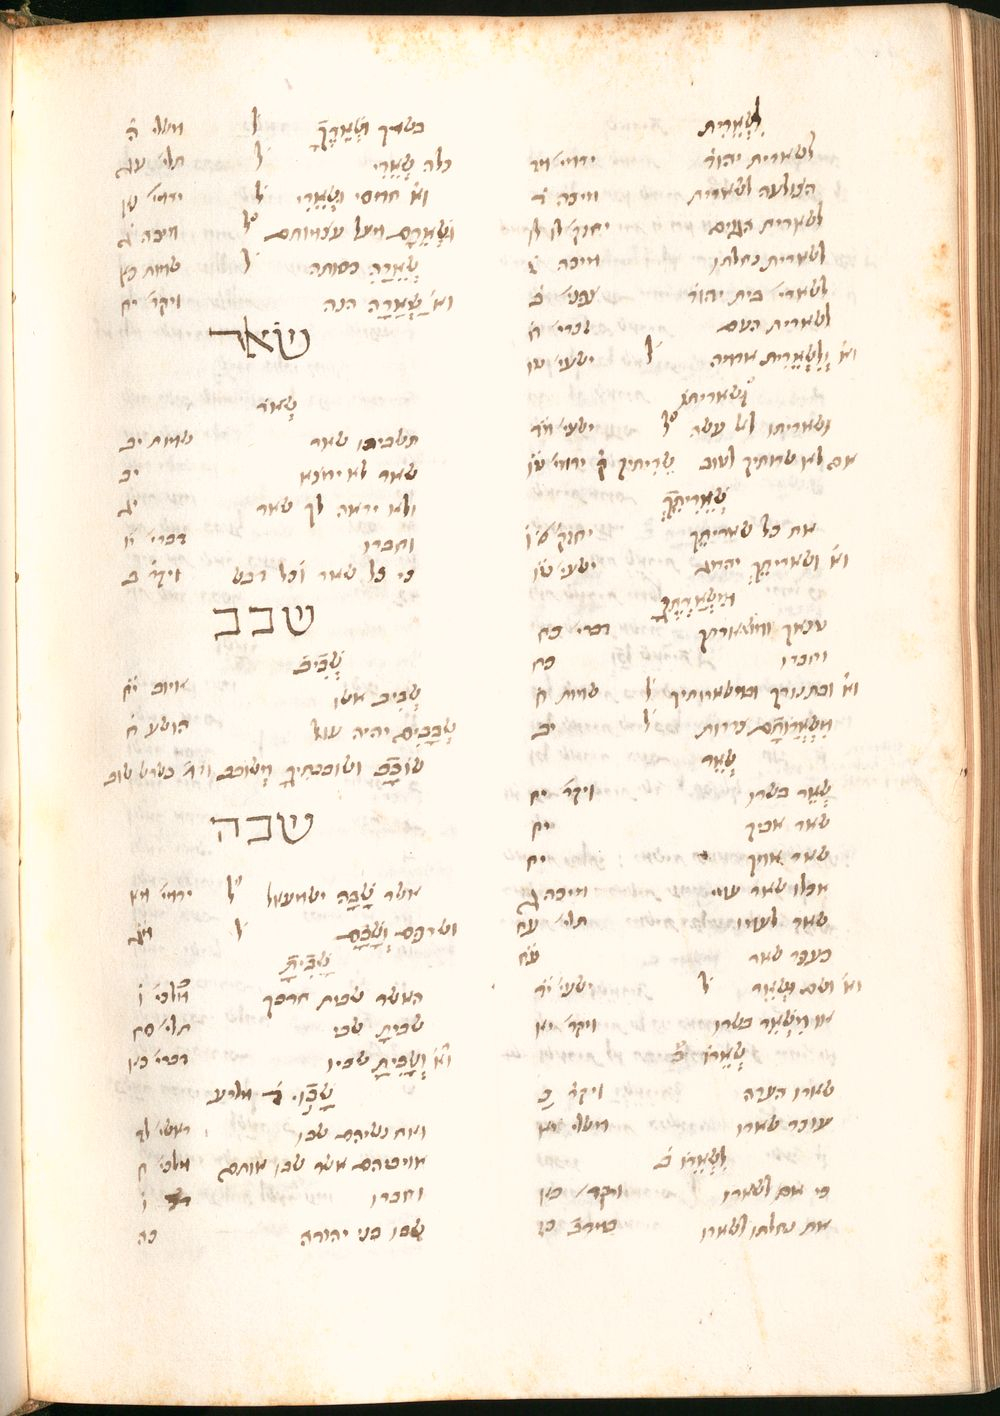 לִשְׁאֵרִית
לשארית יהוד׳ ירמי׳ מד
הצולעה לשארית מיכה ד
לשארית הגוים יחזק׳ לו
לשארית נחלתו מיכה ז
לשארי׳ בית יהוד׳ צפני׳ ב
לשארית העם זכרי׳ ח
וא׳ וְלִשְׁאֵרִית אדמה ל׳ ישעי׳ טו
ושאריתו
ושאריתו לאל עשה ל׳ ישעי׳ מד
אם לא שרותיך לטוב שֵׁרִיתִיךָ ק׳ ירמי׳ טו
שְׁאֵרִיתֵךְ
את כל שאריתך יחזק׳ ה
וא׳ ושאריתך יהרג ישעי׳ יד
מִשְׁאַרְתֶּךָ
טנאך ומשארתך דברי׳ כח
וחברו כח
וא׳ ובתנורך ובמשארותיך ל׳ שמות ח
מִשְׁאֲרֹתָם צרורות ל׳ יב
שְׁאֵר
שְׁאֵר בשרו ויקר׳ יח
שאר אביך יח
שאר אמך יח
אכלו שאר עמי מיכה ג
שאר לעמו תלי׳ עח
כעפר שאר עח
וא׳ ושם וּשְׁאָר ל׳ ישעי׳ יד
או מִשְּׁאֵר בשרו ויקר׳ כה
שְׁאֵרוֹ ב
שארו הערה ויקר׳ כ
עוכר שארו משלי יא
לִשְׁאֵרוֹ ב
כי אם לשארו ויקר׳ כא
את נחלתו לשארו במדב׳ כז
בשרך וּשְׁאֵרֶךָ ל׳ משלי ה
כלה שְׁאֵרִי ל׳ תלי׳ עג
וא׳ חמסי וּשְׁאֵרִי ל׳ ירמי׳ נא
וּשְׁאֵרָם מעל עצמותם ל׳ מיכה ג
שְׁאֵרָהּ כסותה ל׳ שמות כא
וא׳ שַׁאֲרָה הנה ויקר׳ יח
שאר
שְׂאֹר
תשביתו שאר שמות יב
שאר לא ימצא יב
ולא יראה לך שאר יג
וחברו דברי׳ יו
כי כל שאר וכל דבש ויקר׳ ב
שבב
שְׁבִיב
שְׁבִיב אשו איוב יח
שְׁבָבִים יהיה עגל הושע ח
שׁוֹבָב ושובבתיך מְשׁוֹבָב בשרש שוב
שבה
אשר שָׁבָה ישמעאל ל׳ ירמי׳ מא
ושרפם וְשָׁבָם ל׳ מג
שָׁבִיתָ
האשר שבית בחרבך מלכי׳ ו
שבית שבי תלי׳ סח
וא׳ וְשָׁבִיתָ שביו דברי׳ כא
שָׁבוּ ד מלרע
ואת נשיהם שבו ראשי׳ לד
אויביהם אשר שבו אותם מלכי׳ ח
וחברו
שבו בני יהודה כה